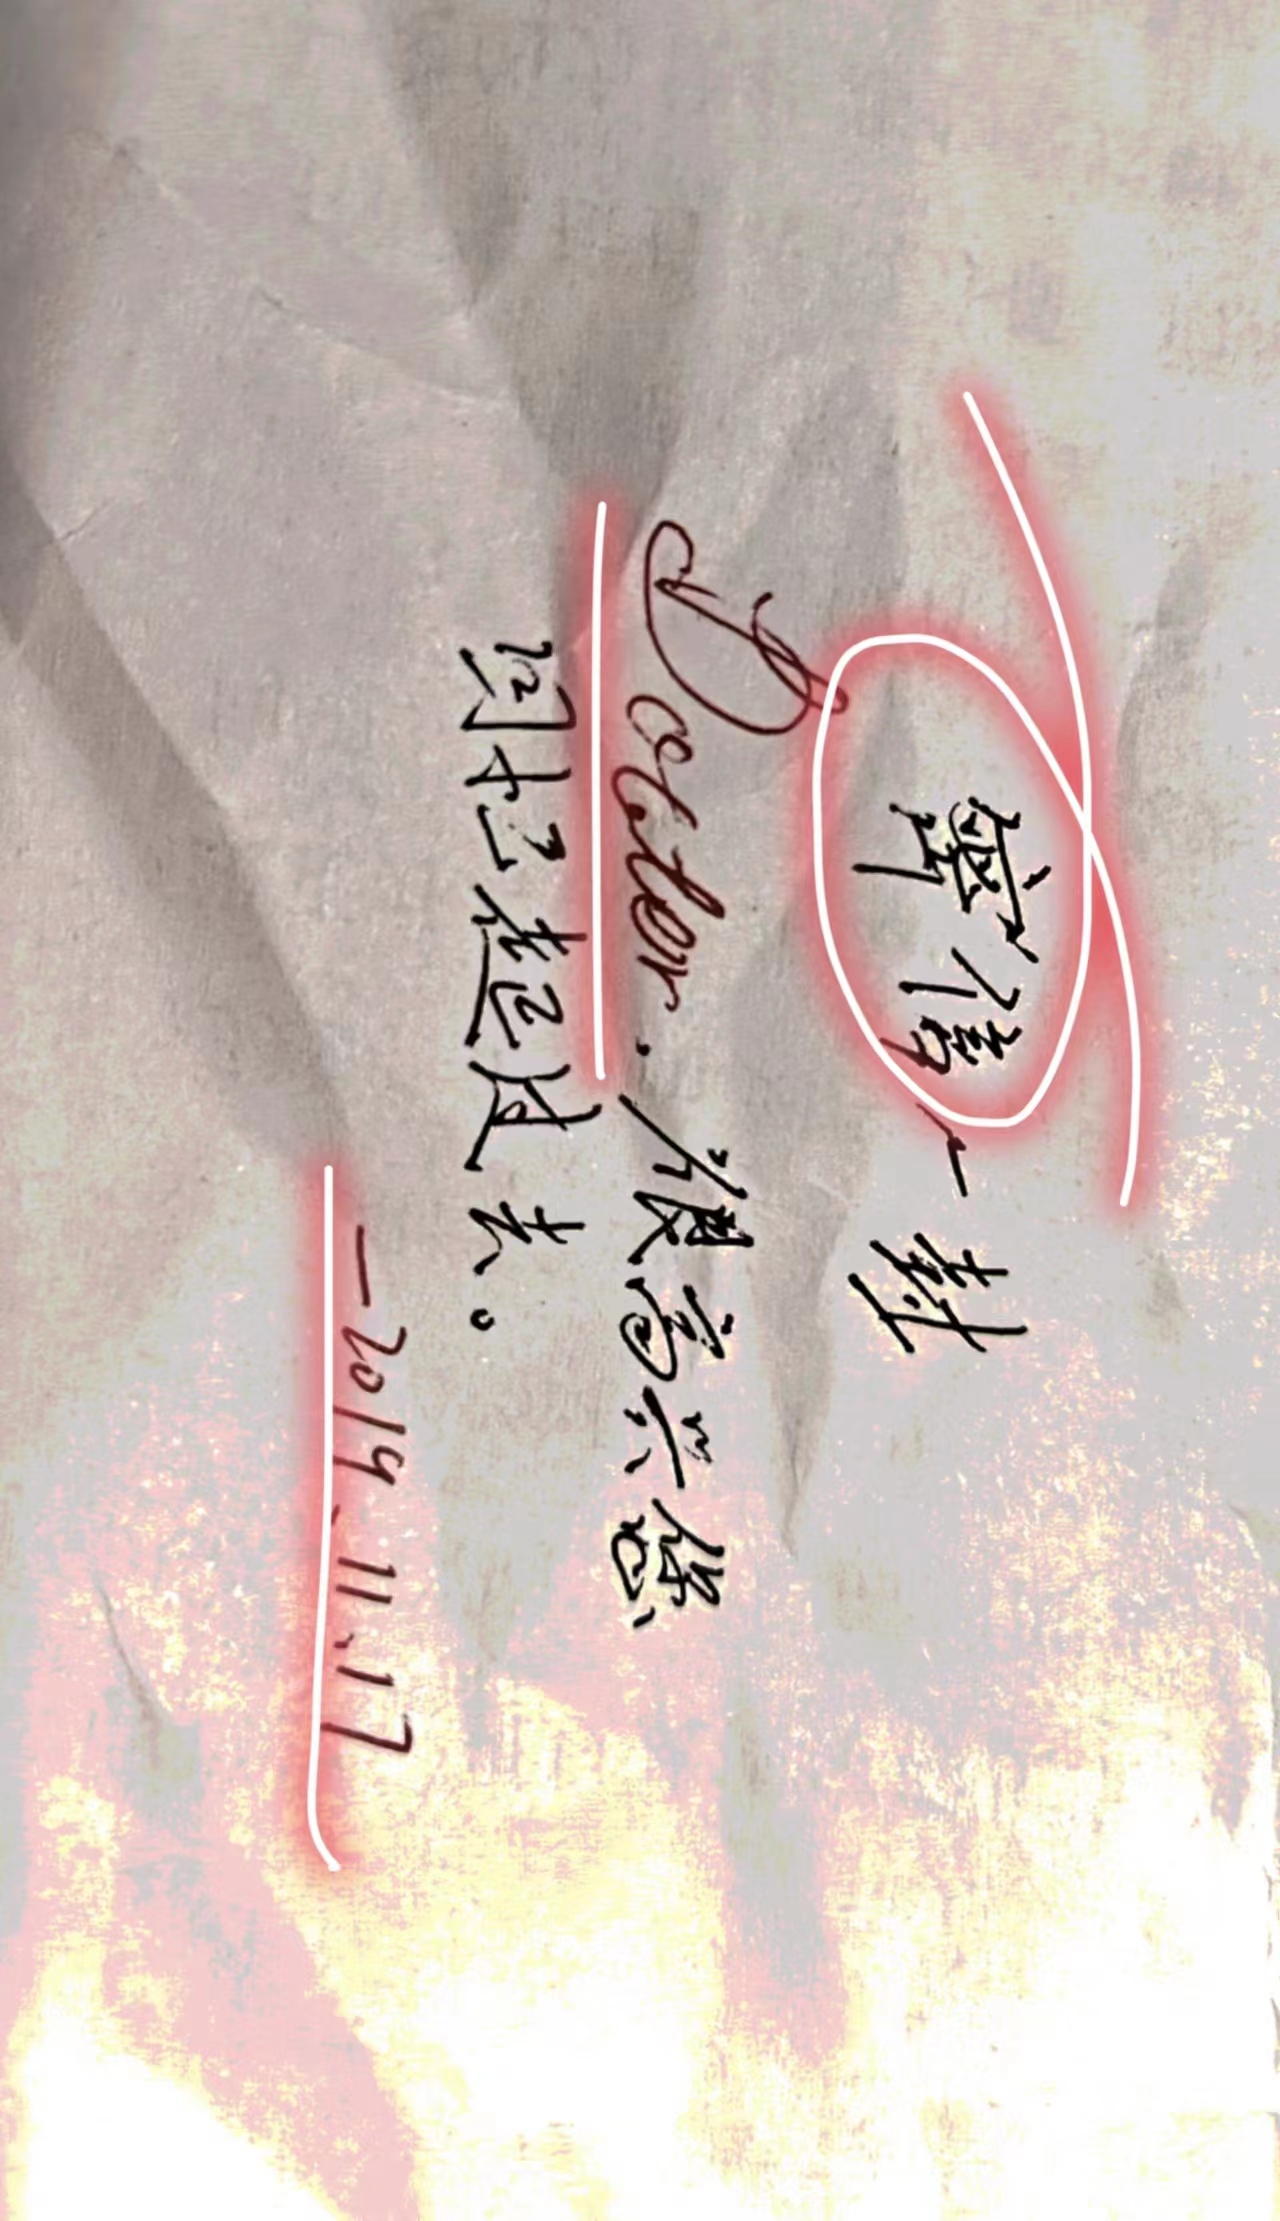 密信一封
Docter.很高兴您
回忆起过去。
—2019、11、17